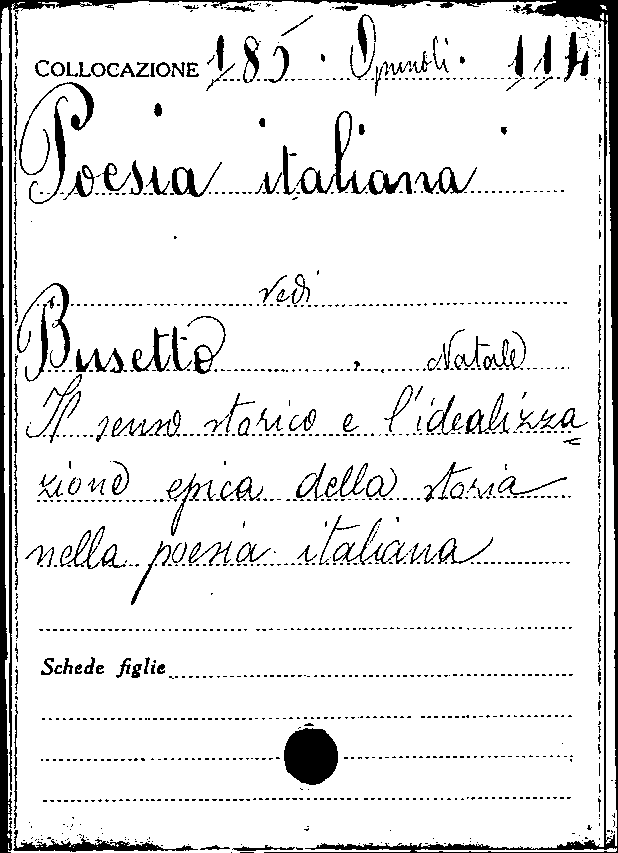 COLLOCAZIONE 185. Opuscoli. 114
Poesia italiana
vedi
Busetto, Natale
Il senso storico e l'idealizza=
zione epica della storia
nella poesia italiana
Schede figlie